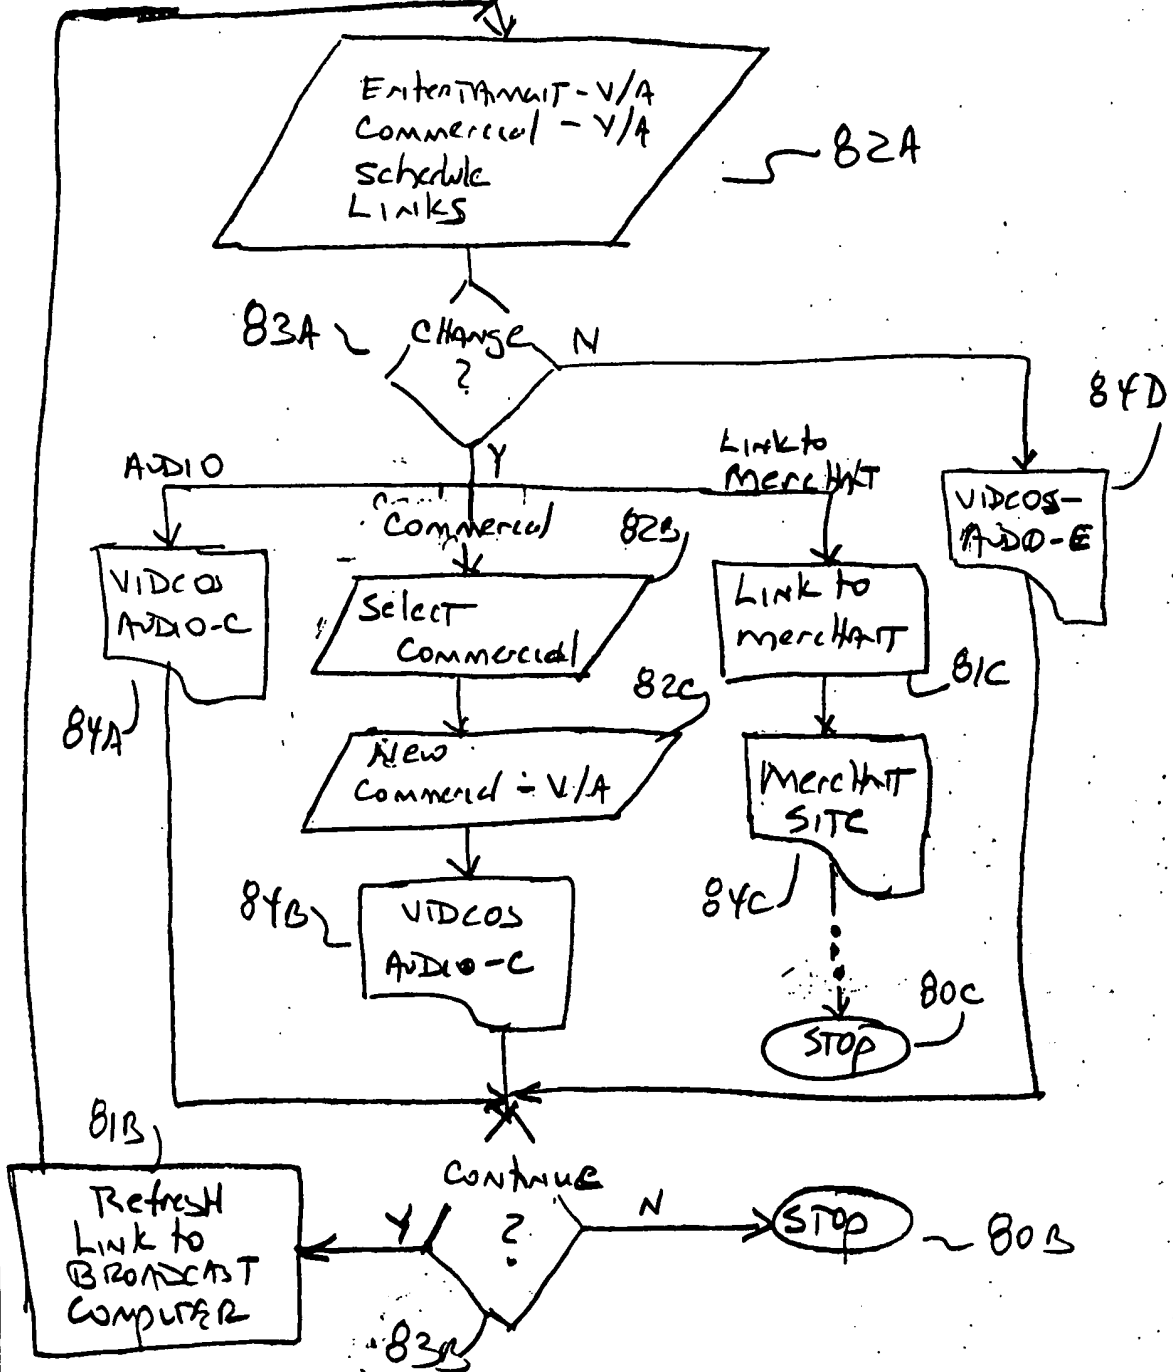 Entertainment - V/A
Commercial - V/A
Schedule
Links
82A
83A
CHANGE
?
N
84D
Y
AUDIO
Link to
MercHANT
Commercial
82B
VIDEOS-
AUDIO-E
VIDEOS
AUDIO-C
84A
Select
Commercial
Link to
mercHANT
81C
82C
New
Commercial - V/A
MercHANT
SITE
84C
84B
VIDEOS
AUDIO-C
80C
STOP
81B
Continue
?
Y
N
STOP
80B
RefresH
Link to
BROADCAST
COMPUTER
83B